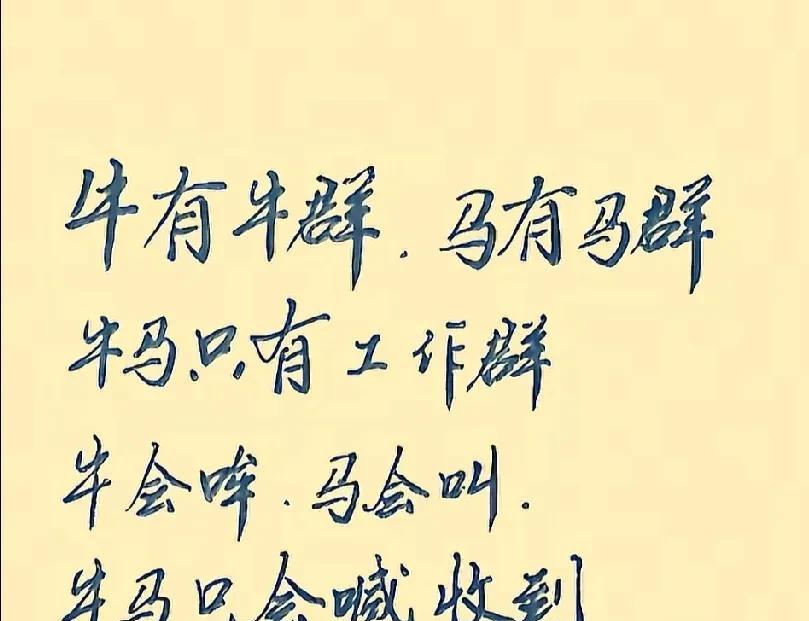 牛有牛群.马有马群
牛马只有工作群
牛会哞.马会叫.
牛马只会喊收到